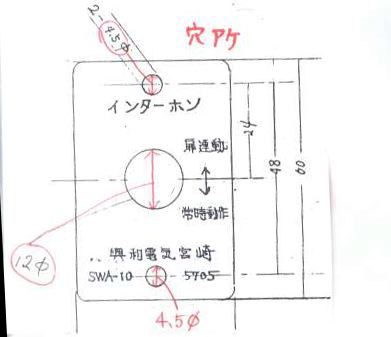 2-4.5φ
穴アケ
インターホン
扉連動
常時動作
24
48
60
12φ
興和電気宮崎
SWA-10 5705
4.5φ